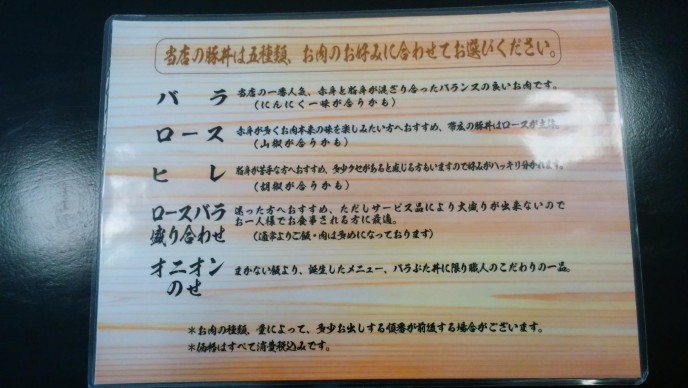 当店の豚丼は五種類、お肉のお好みに合わせてお選びください。
バラ 当店の一番人気、赤身と脂身が混ざり合ったバランスの良いお肉です。
(にんにく一味が合うかも)
ロース 赤身が多くお肉本来の味を楽しみたい方へおすすめ、帯広の豚丼はロースが主流。
(山椒が合うかも)
ヒレ 脂身が苦手な方へおすすめ、多少クセがあると感じる方もいますので好みがハッキリ分かれます。
(胡椒が合うかも)
ロースバラ 迷った方へおすすめ、ただしサービス品により大盛りが出来ないので
盛り合わせ お一人様でお食事される方に最適。
(通常よりご飯・肉は多めになっております)
オニオン まかない飯より、誕生したメニュー、バラぶた丼に限り職人のこだわりの一品。
のせ
*お肉の種類、量によって、多少お出しする順番が前後する場合がございます。
*価格はすべて消費税込みです。